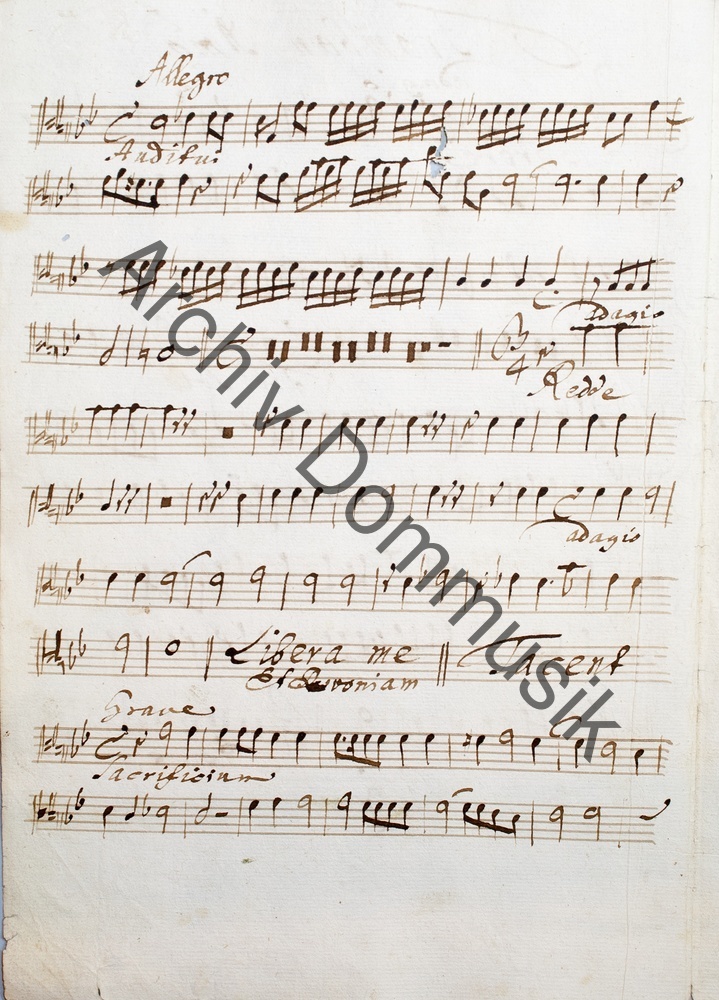 Allegro
Auditui
adagio
3
4
Redde
adagio
Libera me Tacent
Grave
Sacrificium
Archiv Dommusik